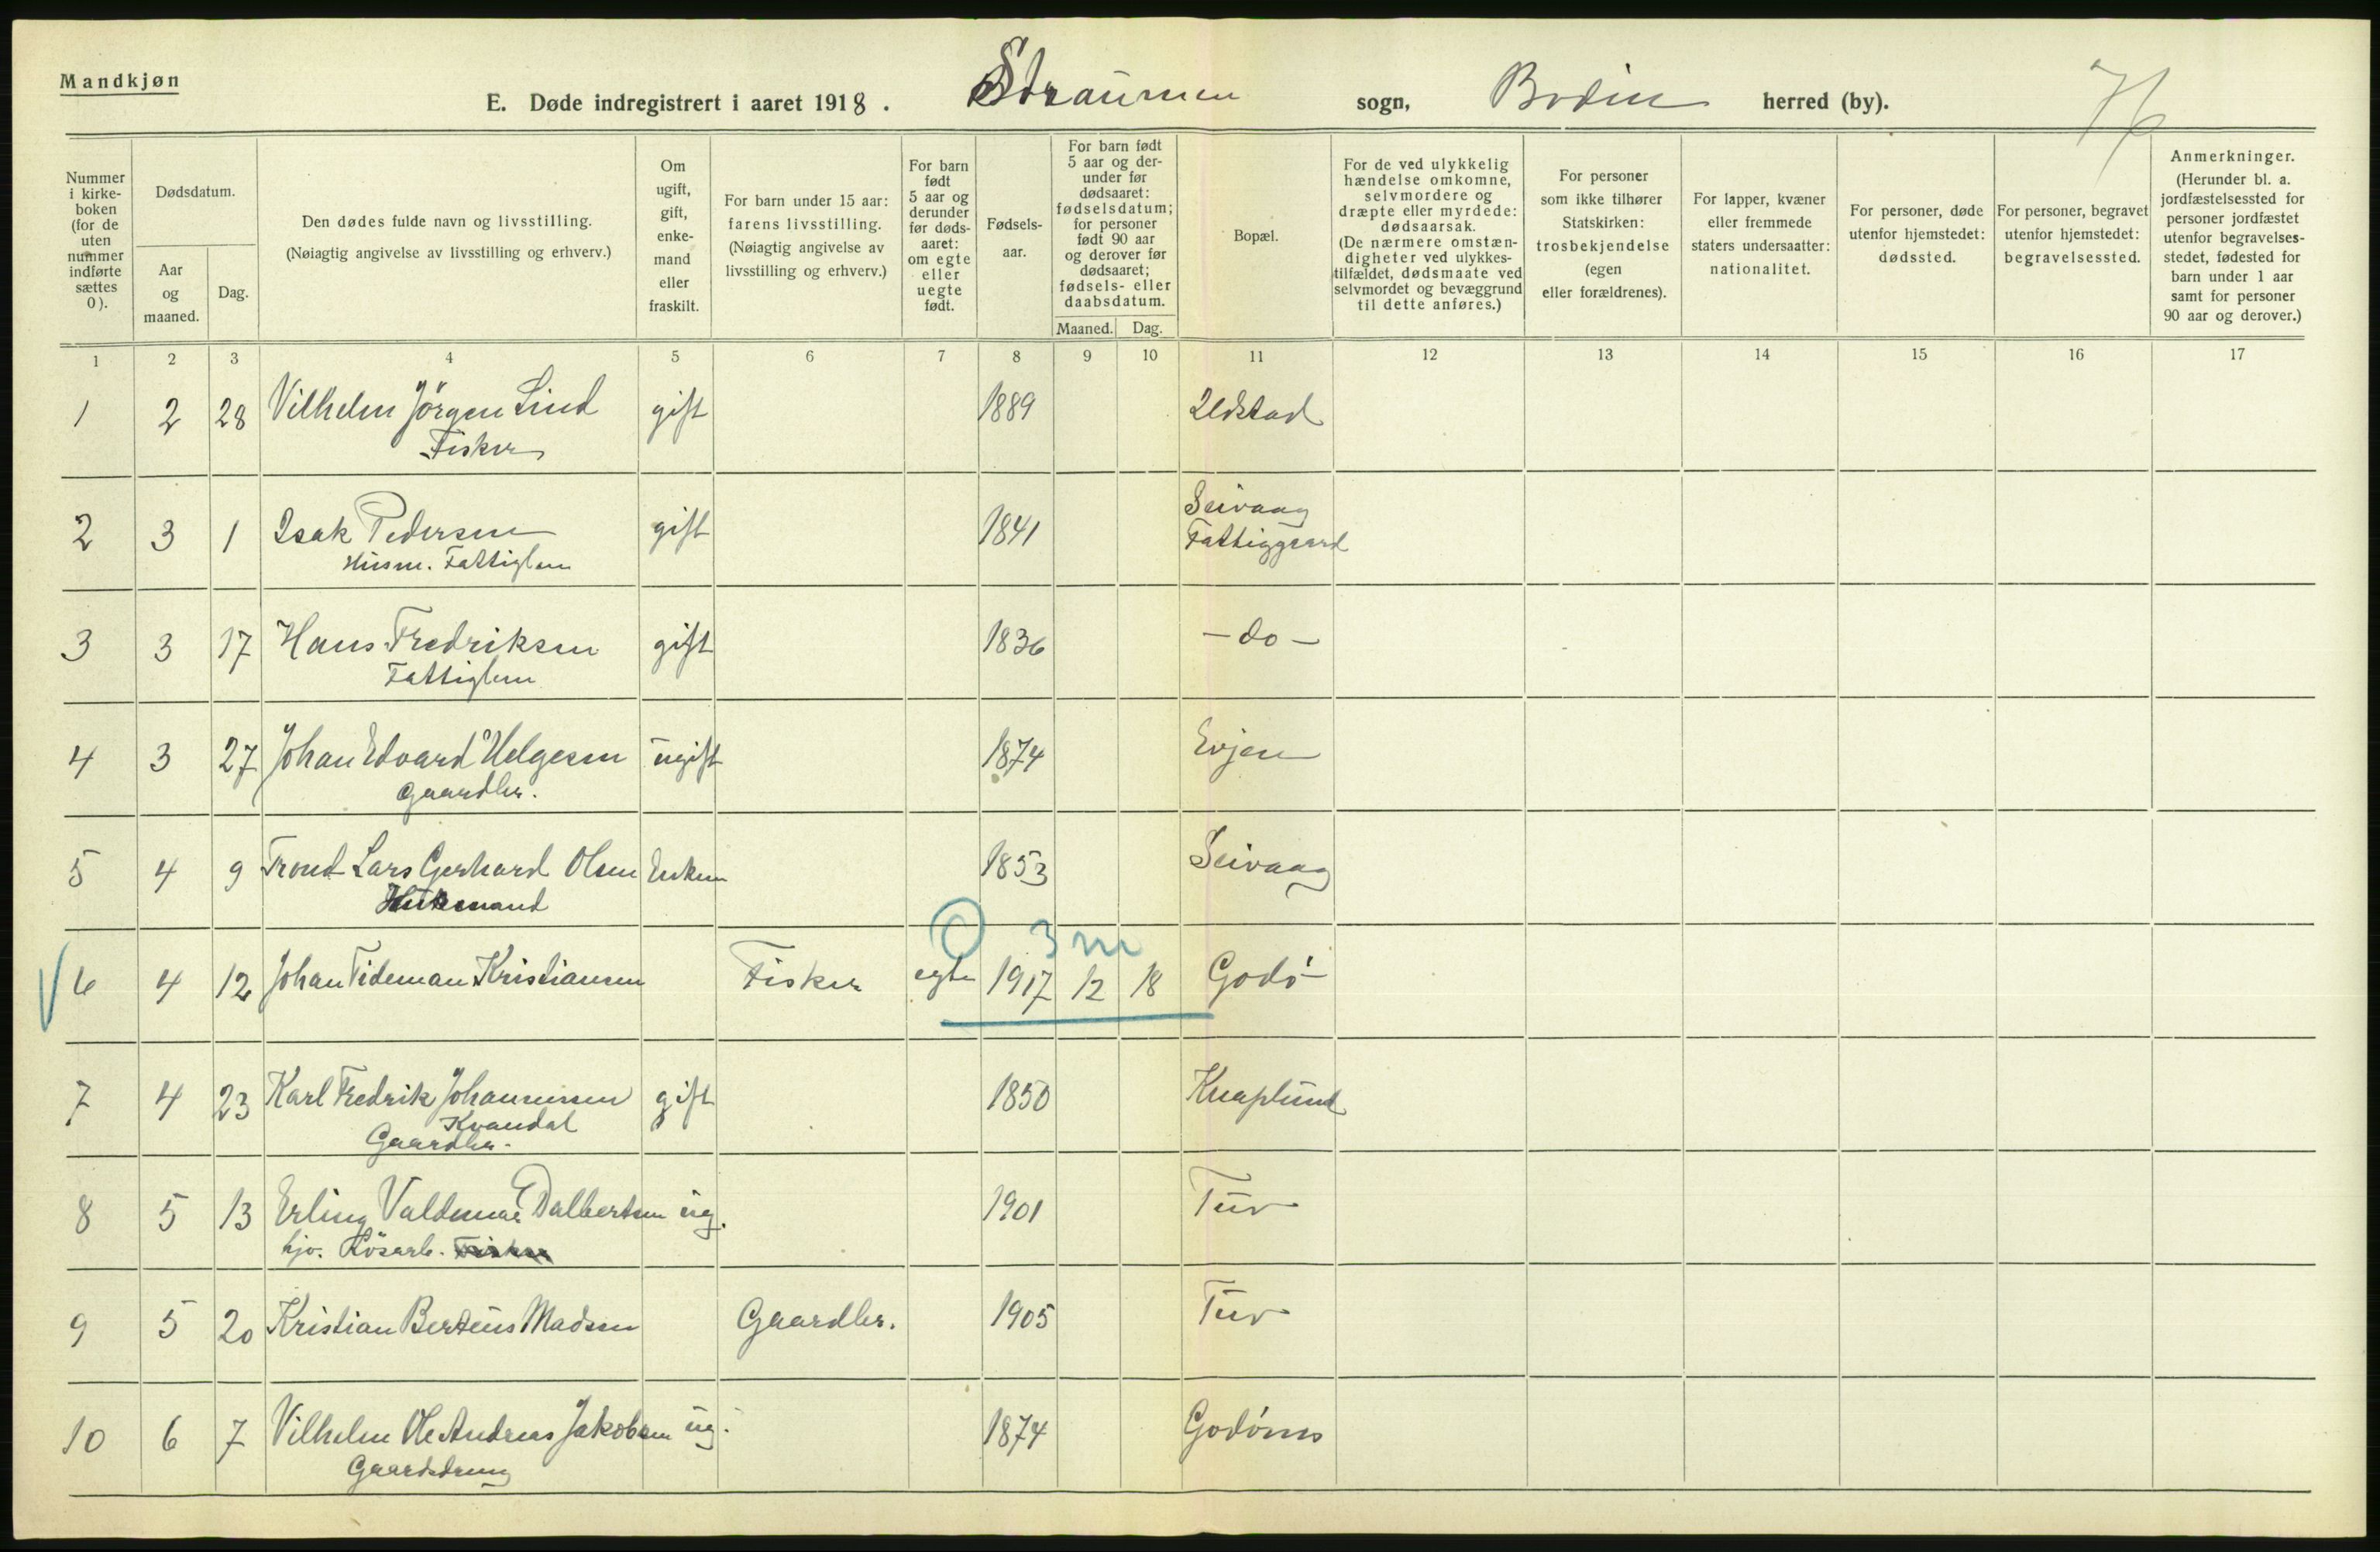 Mandkjøn
E. Døde indregistrert i aaret 1918. Straumen sogn, Bodin herred (by). 76
Nummer i kirke-boken (for de uten nummer indførte sættes 0).
Dødsdatum.
Aar og maaned.
Dag.
Den dødes fulde navn og livsstilling.
(Nøiagtig angivelse av livsstilling og erhverv.)
Om ugift, gift, enke-mand eller fraskilt.
For barn under 15 aar: farens livsstilling.
(Nøiagtig angivelse av livsstilling og erhverv.)
For barn født 5 aar og derunder før døds-aaret: om egte eller uegte født.
Fødsels-aar.
For barn født 5 aar og der-under før dødsaaret: fødselsdatum; for personer født 90 aar og derover før dødsaaret; fødsels- eller daabsdatum.
Maaned. Dag.
Bopæl.
For de ved ulykkelig hændelse omkomne, selvmordere og dræpte eller myrdede: dødsaarsak.
(De nærmere omstæn-digheter ved ulykkes-tilfældet, dødsmaate ved selvmordet og bevæggrund til dette anføres.)
For personer som ikke tilhører Statskirken: trosbekjendelse (egen eller forældrenes).
For lapper, kvæner eller fremmede staters undersaatter: nationalitet.
For personer, døde utenfor hjemstedet: dødssted.
For personer, begravet utenfor hjemstedet: begravelsessted.
Anmerkninger.
(Herunder bl. a. jordfæstelsessted for personer jordfæstet utenfor begravelses-stedet, fødested for barn under 1 aar samt for personer 90 aar og derover.)
1 2 3 4 5 6 7 8 9 10 11 12 13 14 15 16 17
1 2 28 Vilhelm Jörgen Lind gift 1889
Fisker
2 3 1 Isak Pedersen gift 1841 Seivaag
Husm. Fattiglem Fattiggaard
3 3 17 Hans Fredriksen gift 1836 - do -
Fattiglem
4 3 27 Johan Edvard Helgesen ugift 1874 Evjen
Gaardbr.
5 4 9 Trond Lars Gerhard Olsen Enkem 1853 Seivaag
Husmand
3 m
6 4 12 Johan Tideman Kristiansen Fisker egte 1917 12 18 Godø
7 4 23 Karl Fredrik Johannesen gift 1850 Knaplund
Kvandal
Gaardbr.
8 5 13 Erling Valdemar Dalbertsen ug. 1901 Tuv
hjv. Lösarb.
9 5 20 Kristian Berteus Madsen Gaardbr. 1905 Tuv
10 6 7 Vilhelm Ole Andreas Jakobsen ug. 1874 Godønes
Gaardsdreng